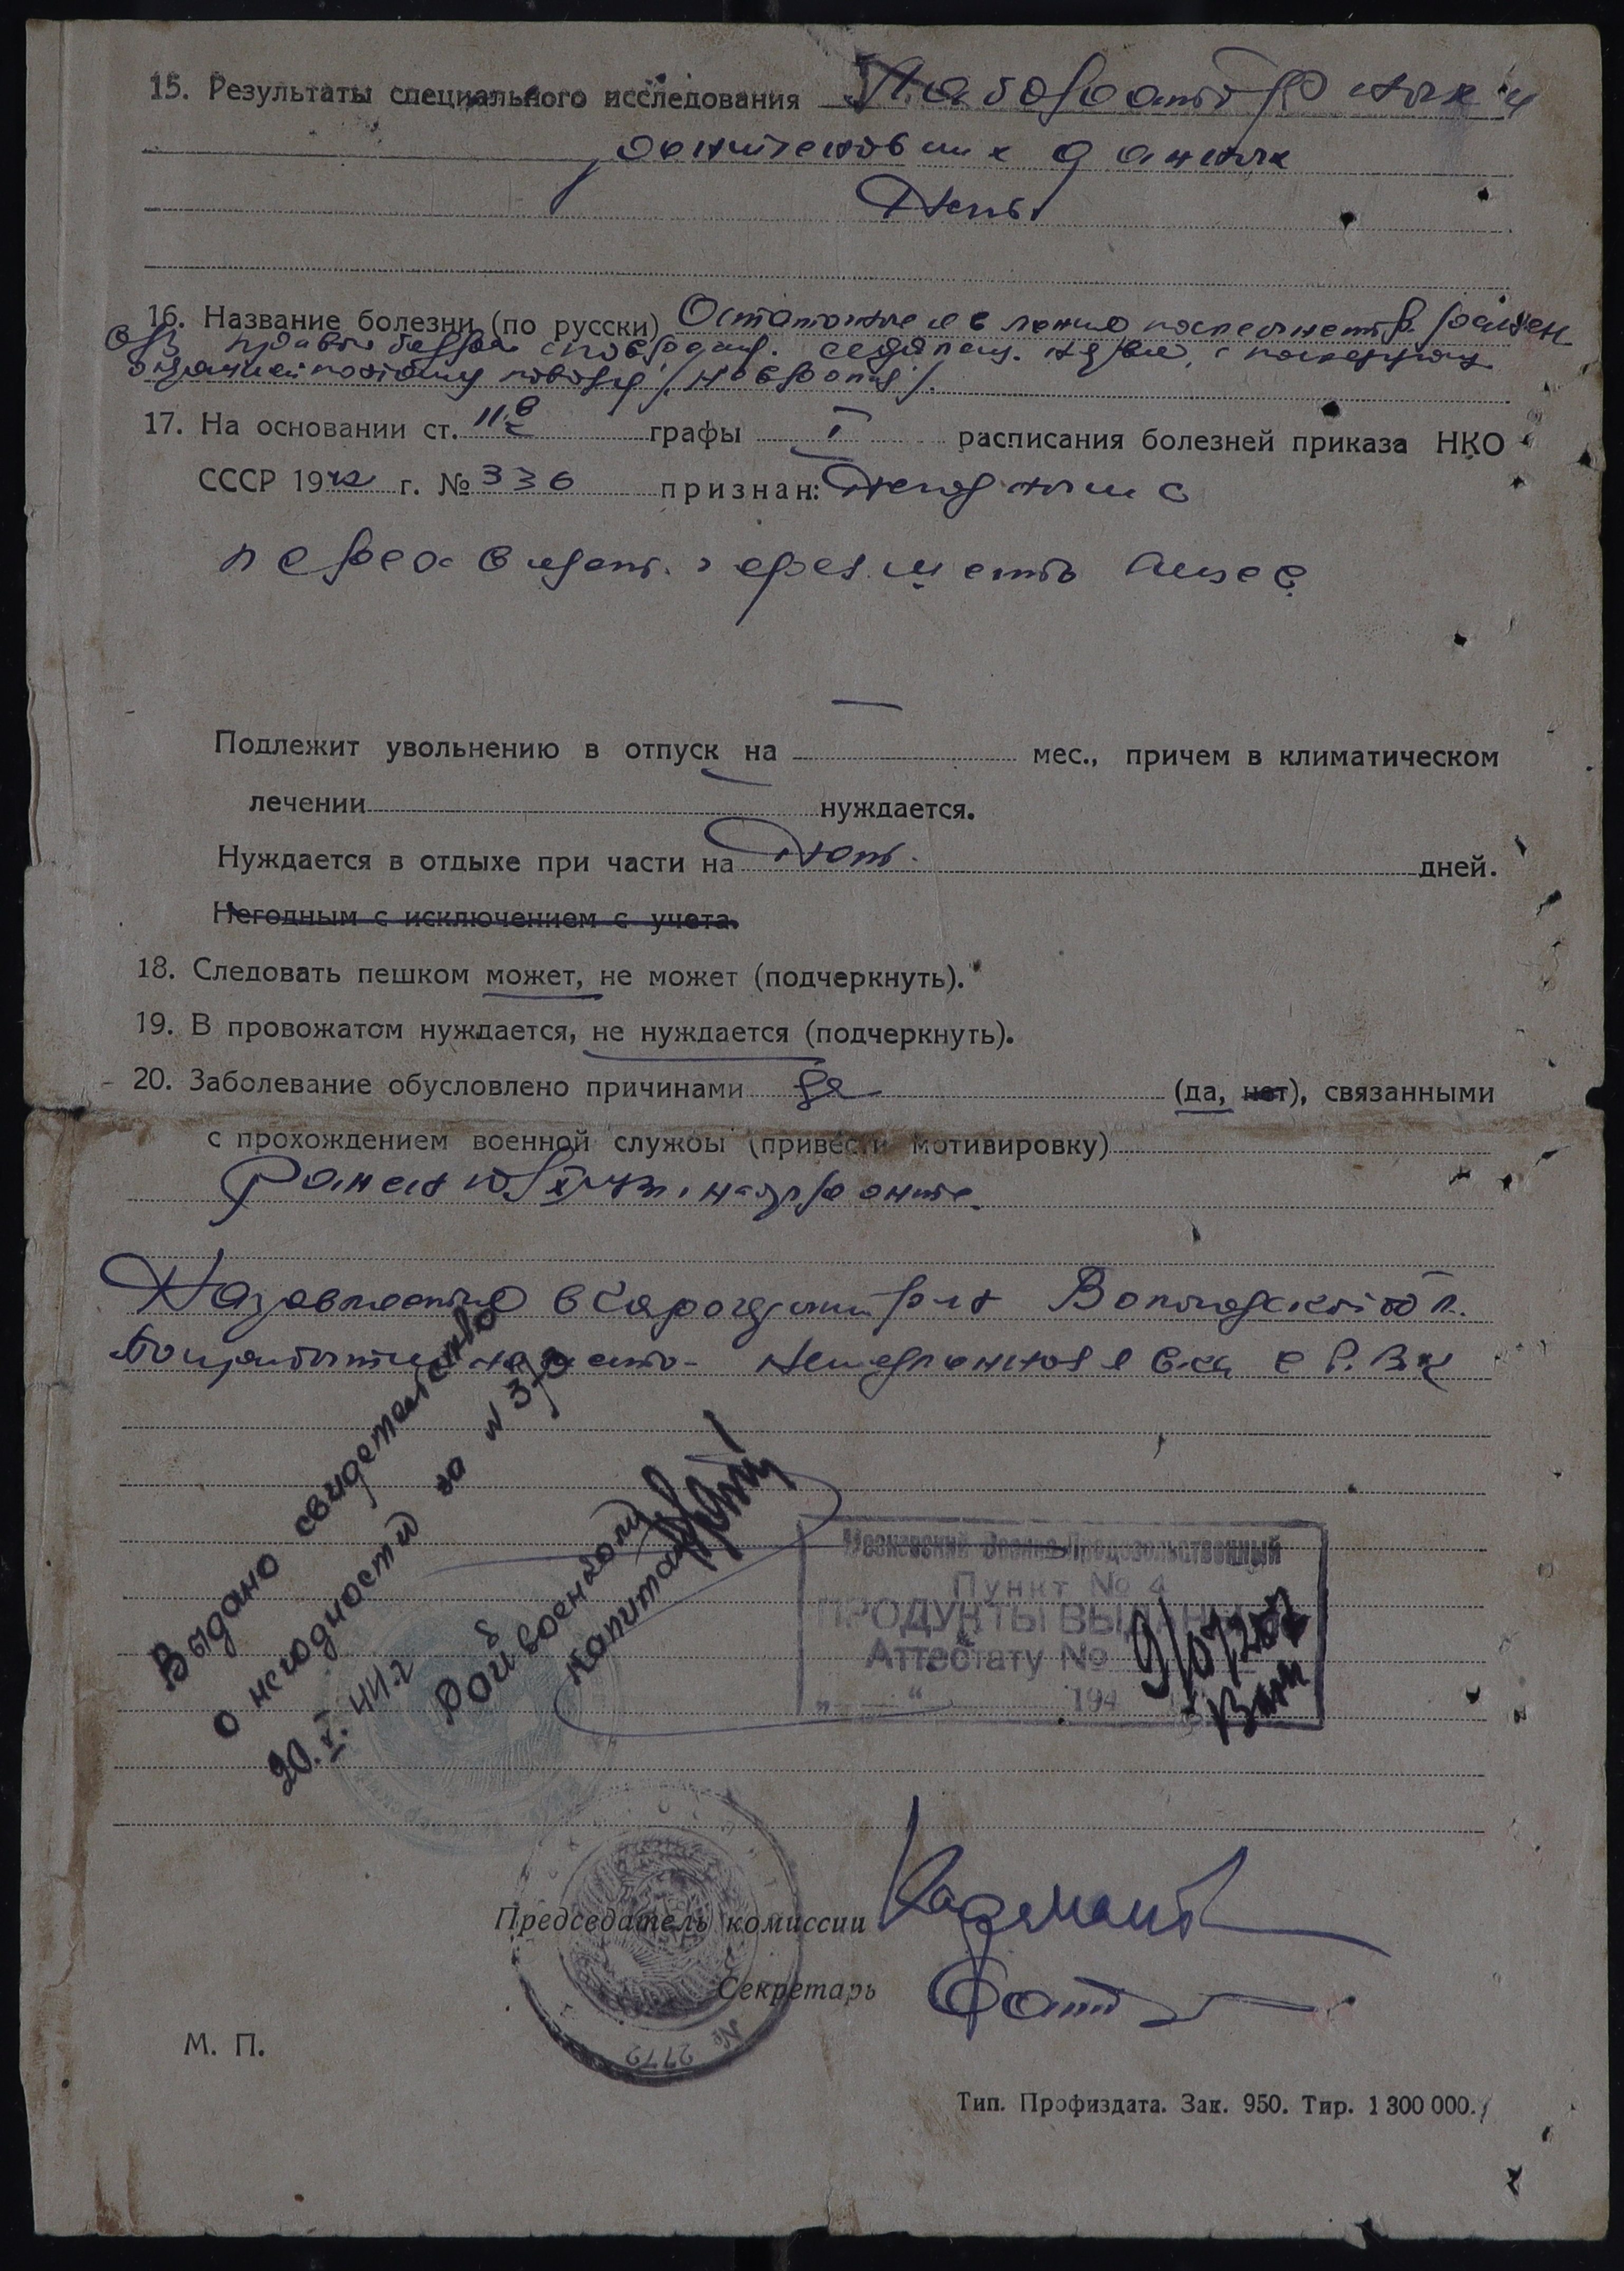 15. Результаты специального исследования Лабораторных и
рентгеновских данных
Нет.
16. Название болезни (по русски) Остаточные явления после ранен.
правого бедра с поврежд. седалищ. нерва, с
по этому поводу
17. На основании ст. 11в графы I расписания болезней приказа НКО
СССР 1942 г. № 336 признан: Негодным с
переосвидет. через шесть мисец
Подлежит увольнению в отпуск на — мес., причем в климатическом
лечении нуждается.
Нуждается в отдыхе при части на Нет. дней.
Негодным с исключением с учета.
18. Следовать пешком может, не может (подчеркнуть).
19. В провожатом нуждается, не нуждается (подчеркнуть).
20. Заболевание обусловлено причинами да (да, нет), связанными
с прохождением военной службы (привести мотивировку)
Ранен на фронте.
Направляется в Вологодской обл.
По прибытии на место - немедленная явка в Р.В.К
Выдано свидетельство
о негодности за №
20.I.44 г
Райвоенком
капитан
Московский Военно-Продовольственный
Пункт № 4
ПРОДУКТЫ ВЫДАНЫ
Аттестату №
„ “ 194
Председатель комиссии
Секретарь
№ 2772
М. П.
Тип. Профиздата. Зак. 950. Тир. 1 300 000.